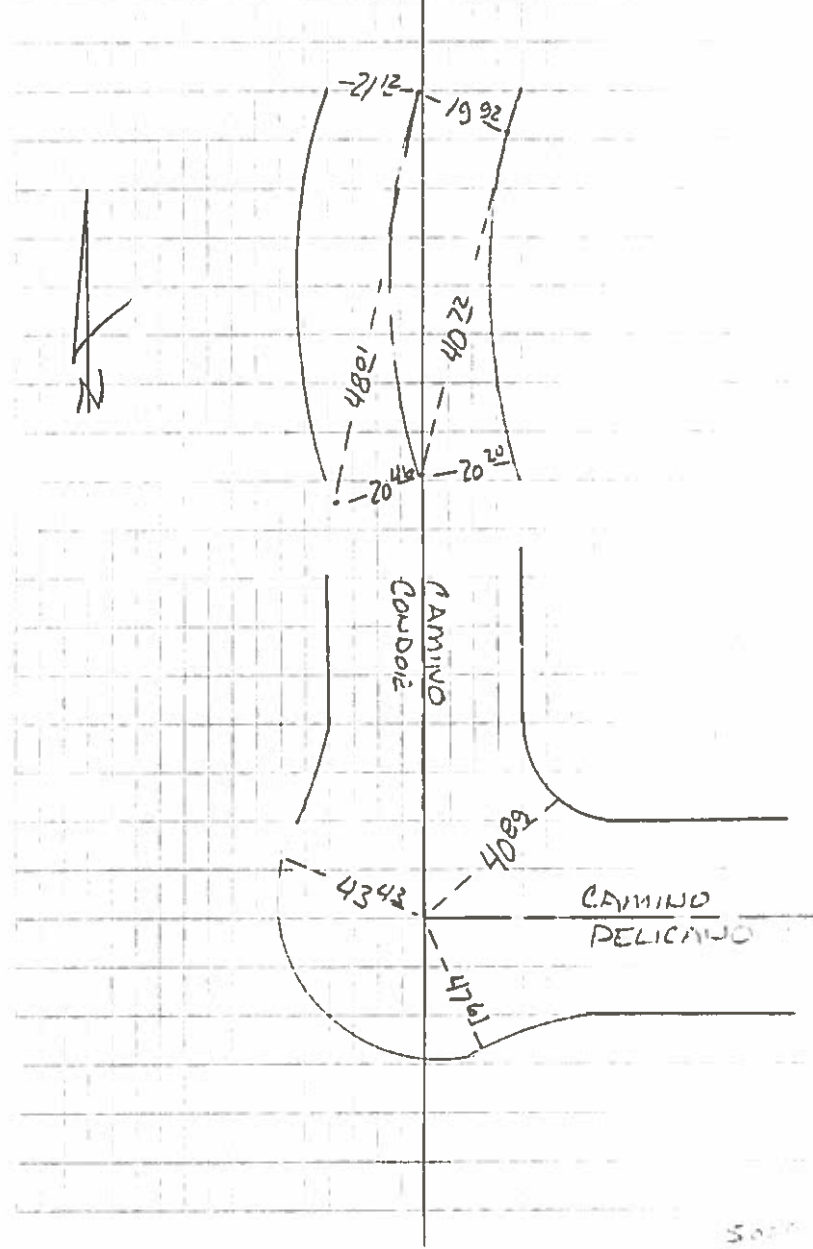 21 12
19 92
N
48 01
40 22
20 48
20 20
CAMINO
CONDOR
40 89
43 43
CAMINO
PELICANO
47 61